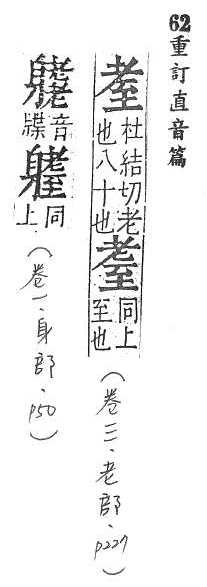 62重訂直音篇
耊 杜結切老也八十也 耋 同上至也 （卷三、老部、p227）
音牒 同上 （卷一、身部、p50）